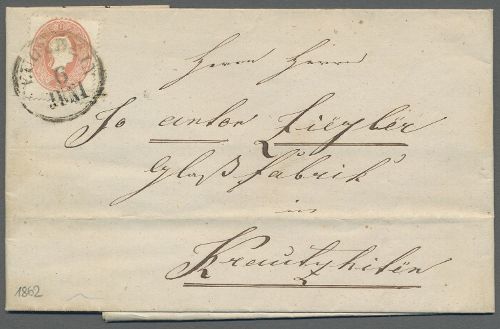 6
JUNI
Herrn Herrn
Jo anton Ziegler
Glaß fabrik
in
Krautzhitën
1862